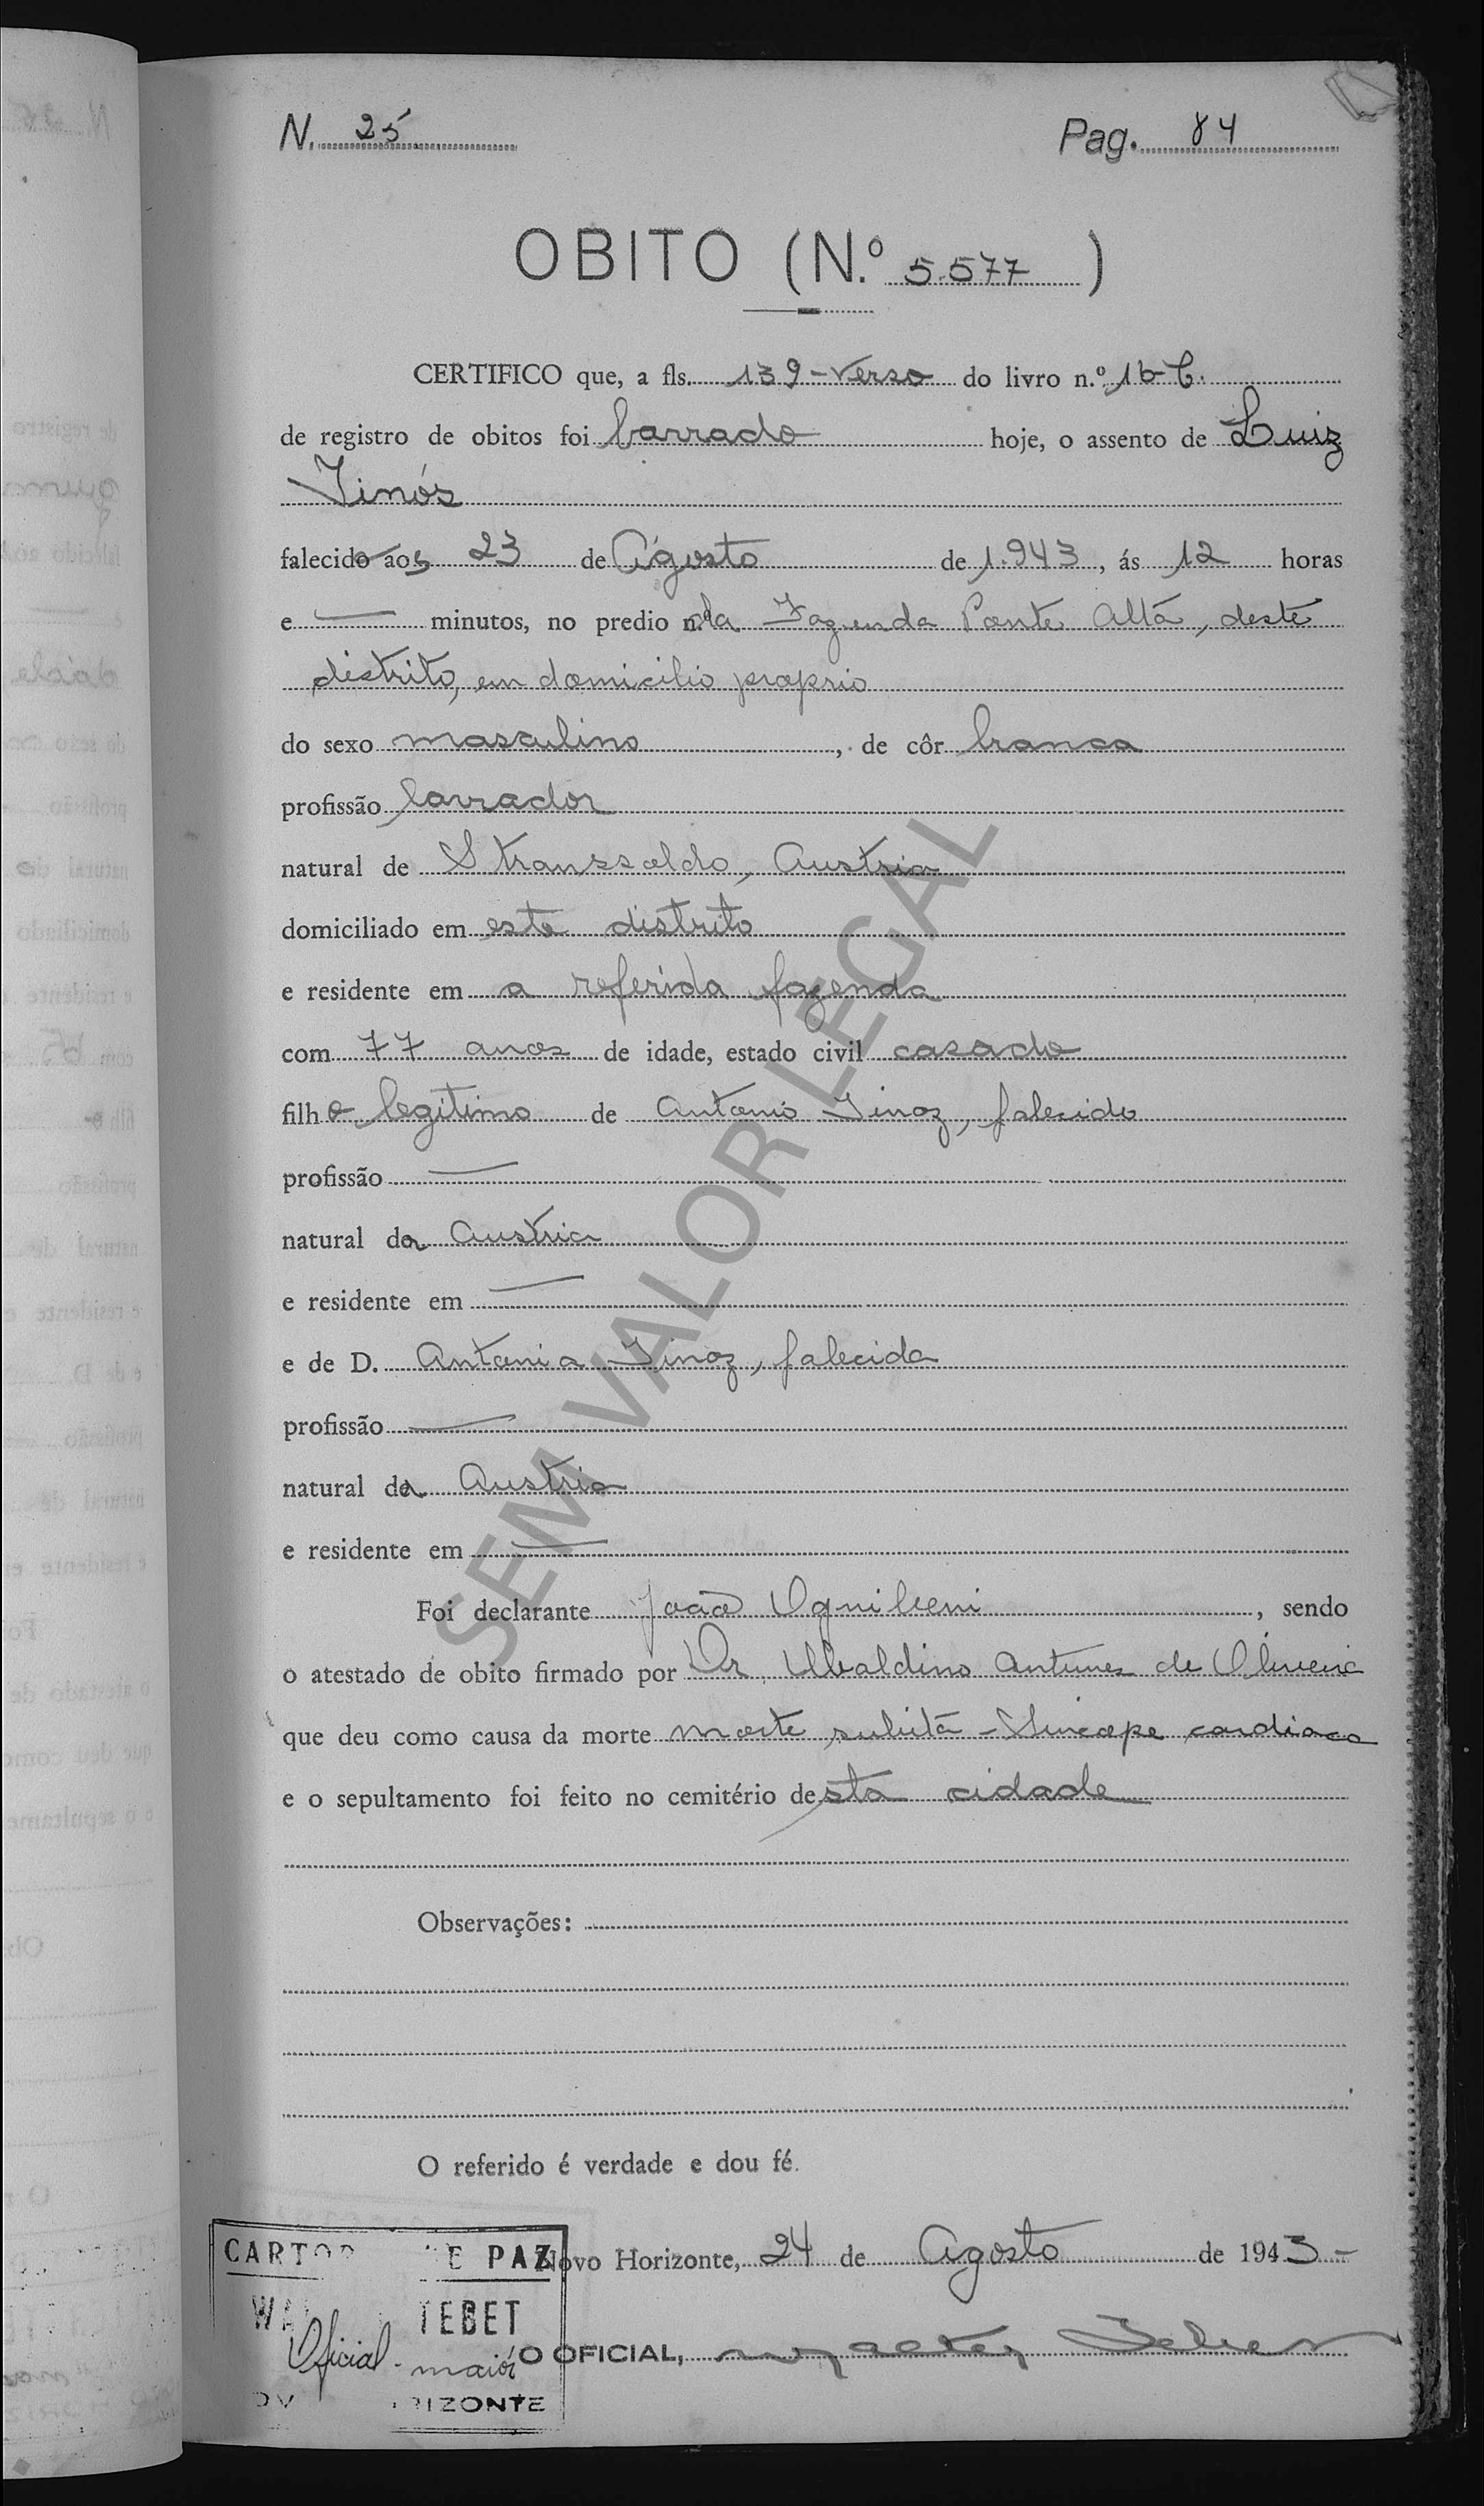 N. 25 Pag. 84
OBITO (N.º 5.577 )
CERTIFICO que, a fls. 139-verso do livro n.º 16-C.
de registro de obitos foi lavrado hoje, o assento de Luiz
Tinós
falecido aos 23 de Agosto de 1.943, ás 12 horas
e — minutos, no predio n.º da Fazenda Ponte Alta, deste
distrito, em domicilio proprio
do sexo masculino, de côr branca
profissão lavrador
natural de Strassoldo, Austria
domiciliado em este distrito
e residente em a referida fazenda
com 77 anos de idade, estado civil casado
filho legitimo de Antonio Tinoz, falecido
profissão —
natural da Austria
e residente em —
e de D. Antonia Tinoz, falecida
profissão —
natural da Austria
e residente em —
Foi declarante João Ognibeni, sendo
o atestado de obito firmado por Dr. Ubaldino Antunes de Oliveira
que deu como causa da morte morte subita - Sincope cardiaca
e o sepultamento foi feito no cemitério desta cidade
Observações:
O referido é verdade e dou fé.
Novo Horizonte, 24 de Agosto de 1943-
O OFICIAL,
PAZ
TEBET
Oficial-maior
SEM VALOR LEGAL